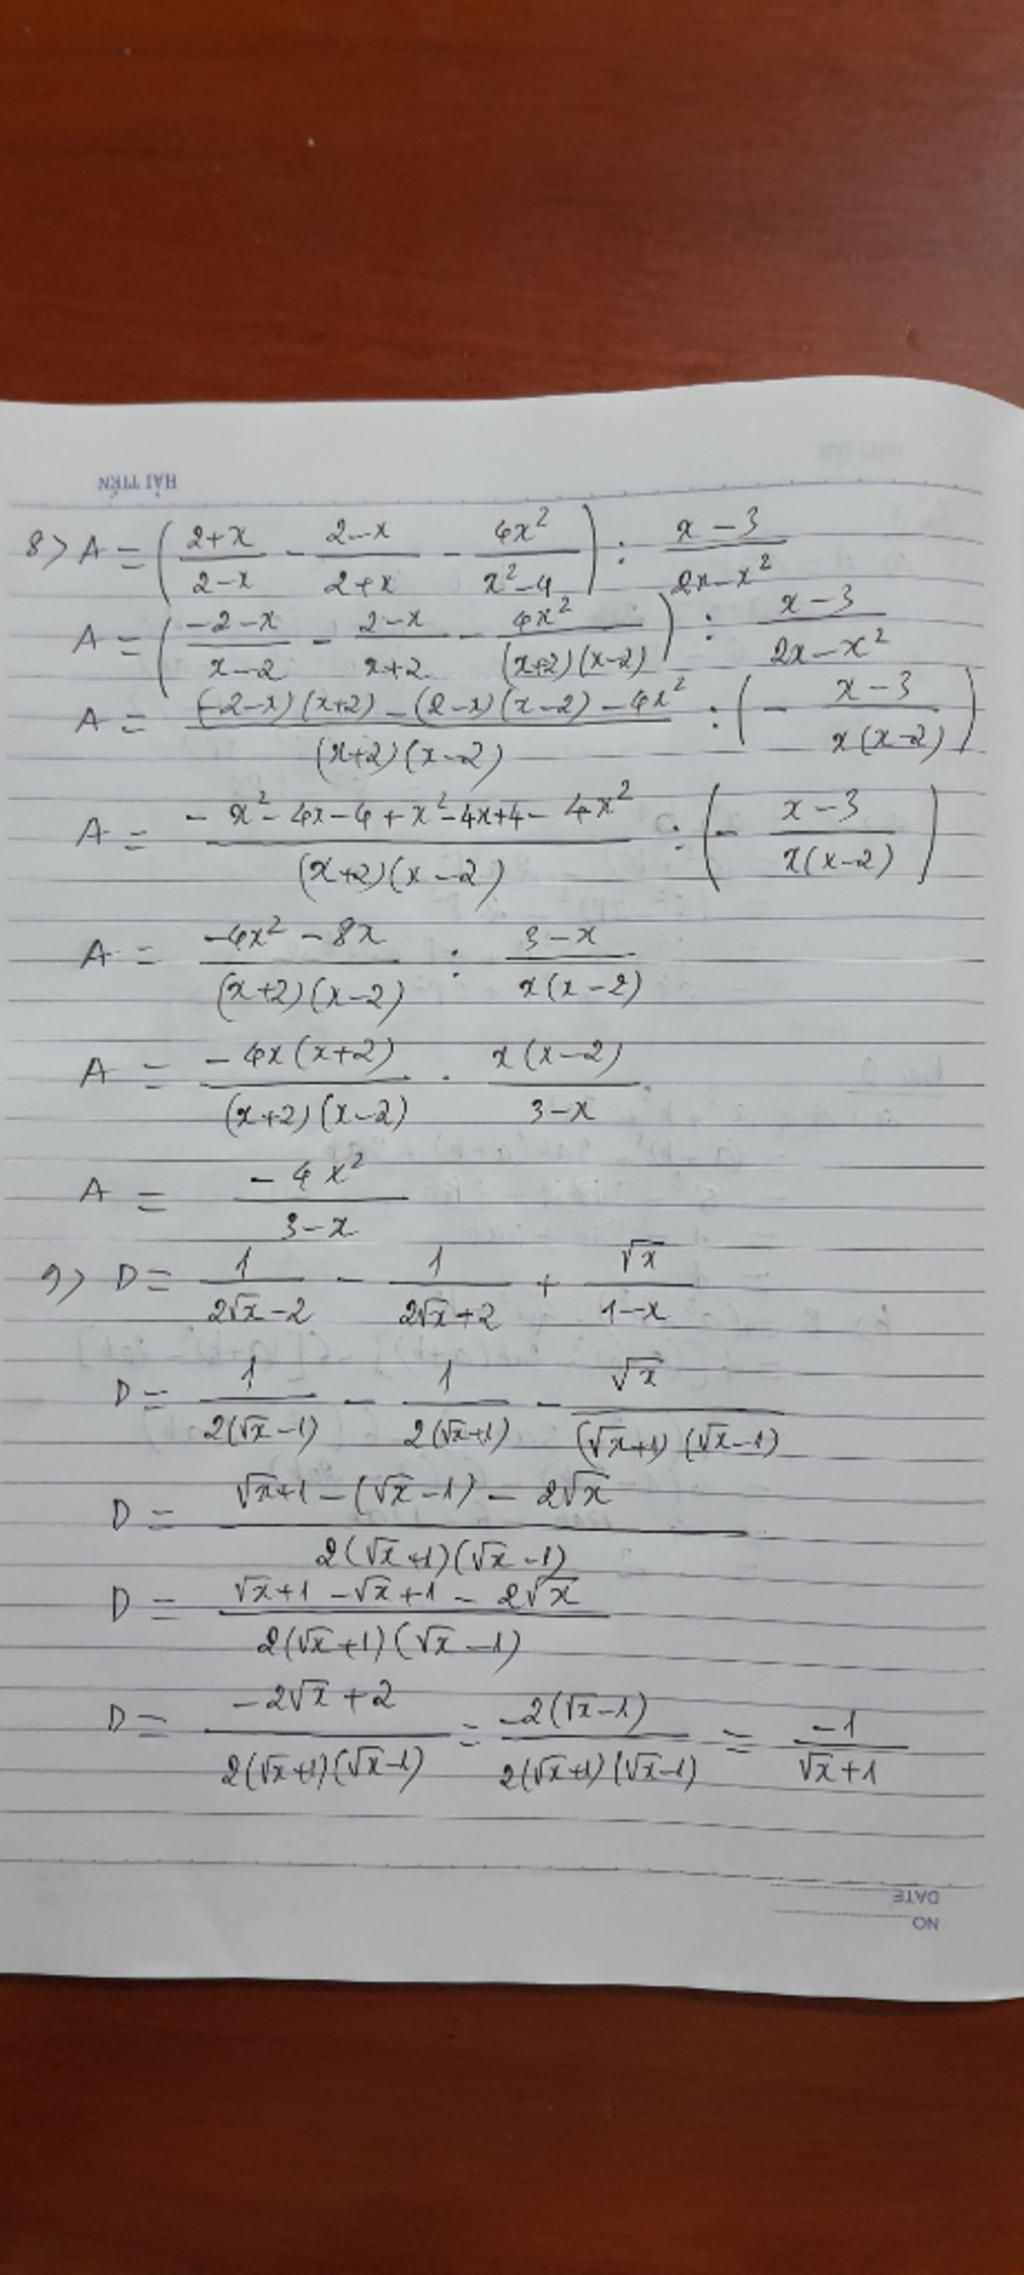 HẢI TIẾN
8> A = ( (2+x)/(2-x) - (2-x)/(2+x) - 4x²/(x²-4) ) : (x-3)/(2x-x²)
A = ( (-2-x)/(x-2) - (2-x)/(x+2) - 4x²/((x+2)(x-2)) ) : (x-3)/(2x-x²)
A = ((-2-x)(x+2) - (2-x)(x-2) - 4x²)/((x+2)(x-2)) : ( - (x-3)/(x(x-2)) )
A = (-x²-4x-4+x²-4x+4-4x²)/((x+2)(x-2)) : ( - (x-3)/(x(x-2)) )
A = (-4x²-8x)/((x+2)(x-2)) : (3-x)/(x(x-2))
A = (-4x(x+2))/((x+2)(x-2)) . (x(x-2))/(3-x)
A = (-4x²)/(3-x)
9> D = 1/(2√x-2) - 1/(2√x+2) + √x/(1-x)
D = 1/(2(√x-1)) - 1/(2(√x+1)) - √x/((√x+1)(√x-1))
D = (√x+1-(√x-1)-2√x)/(2(√x+1)(√x-1))
D = (√x+1-√x+1-2√x)/(2(√x+1)(√x-1))
D = (-2√x+2)/(2(√x+1)(√x-1)) = (-2(√x-1))/(2(√x+1)(√x-1)) = (-1)/(√x+1)
DATE
NO